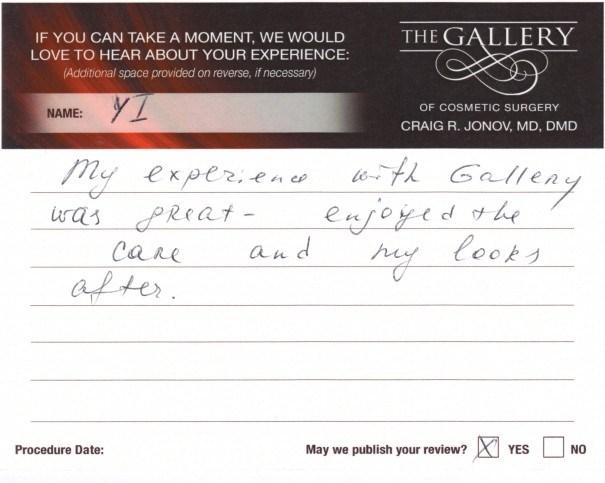 IF YOU CAN TAKE A MOMENT, WE WOULD
LOVE TO HEAR ABOUT YOUR EXPERIENCE:
(Additional space provided on reverse, if necessary)
NAME: YI
THE GALLERY
OF COSMETIC SURGERY
CRAIG R. JONOV, MD, DMD
My experience with Gallery
was great - enjoyed the
care and my looks
after.
Procedure Date:
May we publish your review? X YES NO